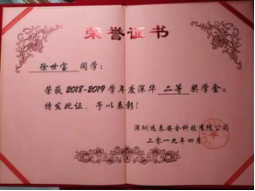 荣誉证书
徐世宝 同学:
荣获2018-2019学年度深华 二等 奖学金。
特发此证,予以表彰!
深圳市安全科技有限公司
二零一九年四月